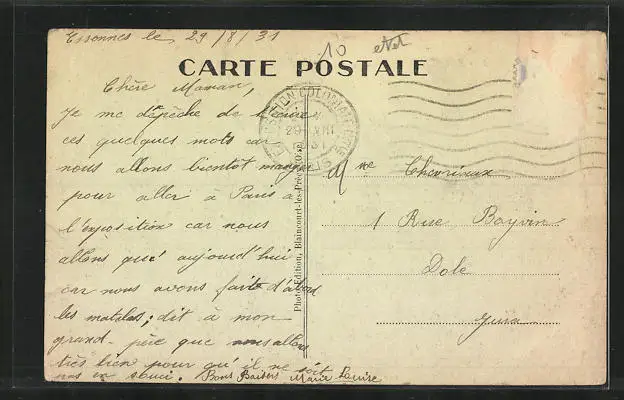 Essonnes le, 29/8/31
10
CARTE POSTALE
Chère Maman,
Je me dépêche de t'écrire
ces quelques mots car
nous allons bientôt manger
pour aller à Paris à
l'exposition car nous
allons que aujourd'hui
car nous avons fait d'abord
les matelas; dit à mon
grand-père que nous allons
très bien pour qu'il ne soit
pas en souci. Bons Baisers Marie Louise
EXPOSITION COLONIALE
29 VIII
31
Photo-Edition, Blaincourt-les-Précy (Oise)
Mme Chevriaux
1 Rue Boyvin
Dole
Jura